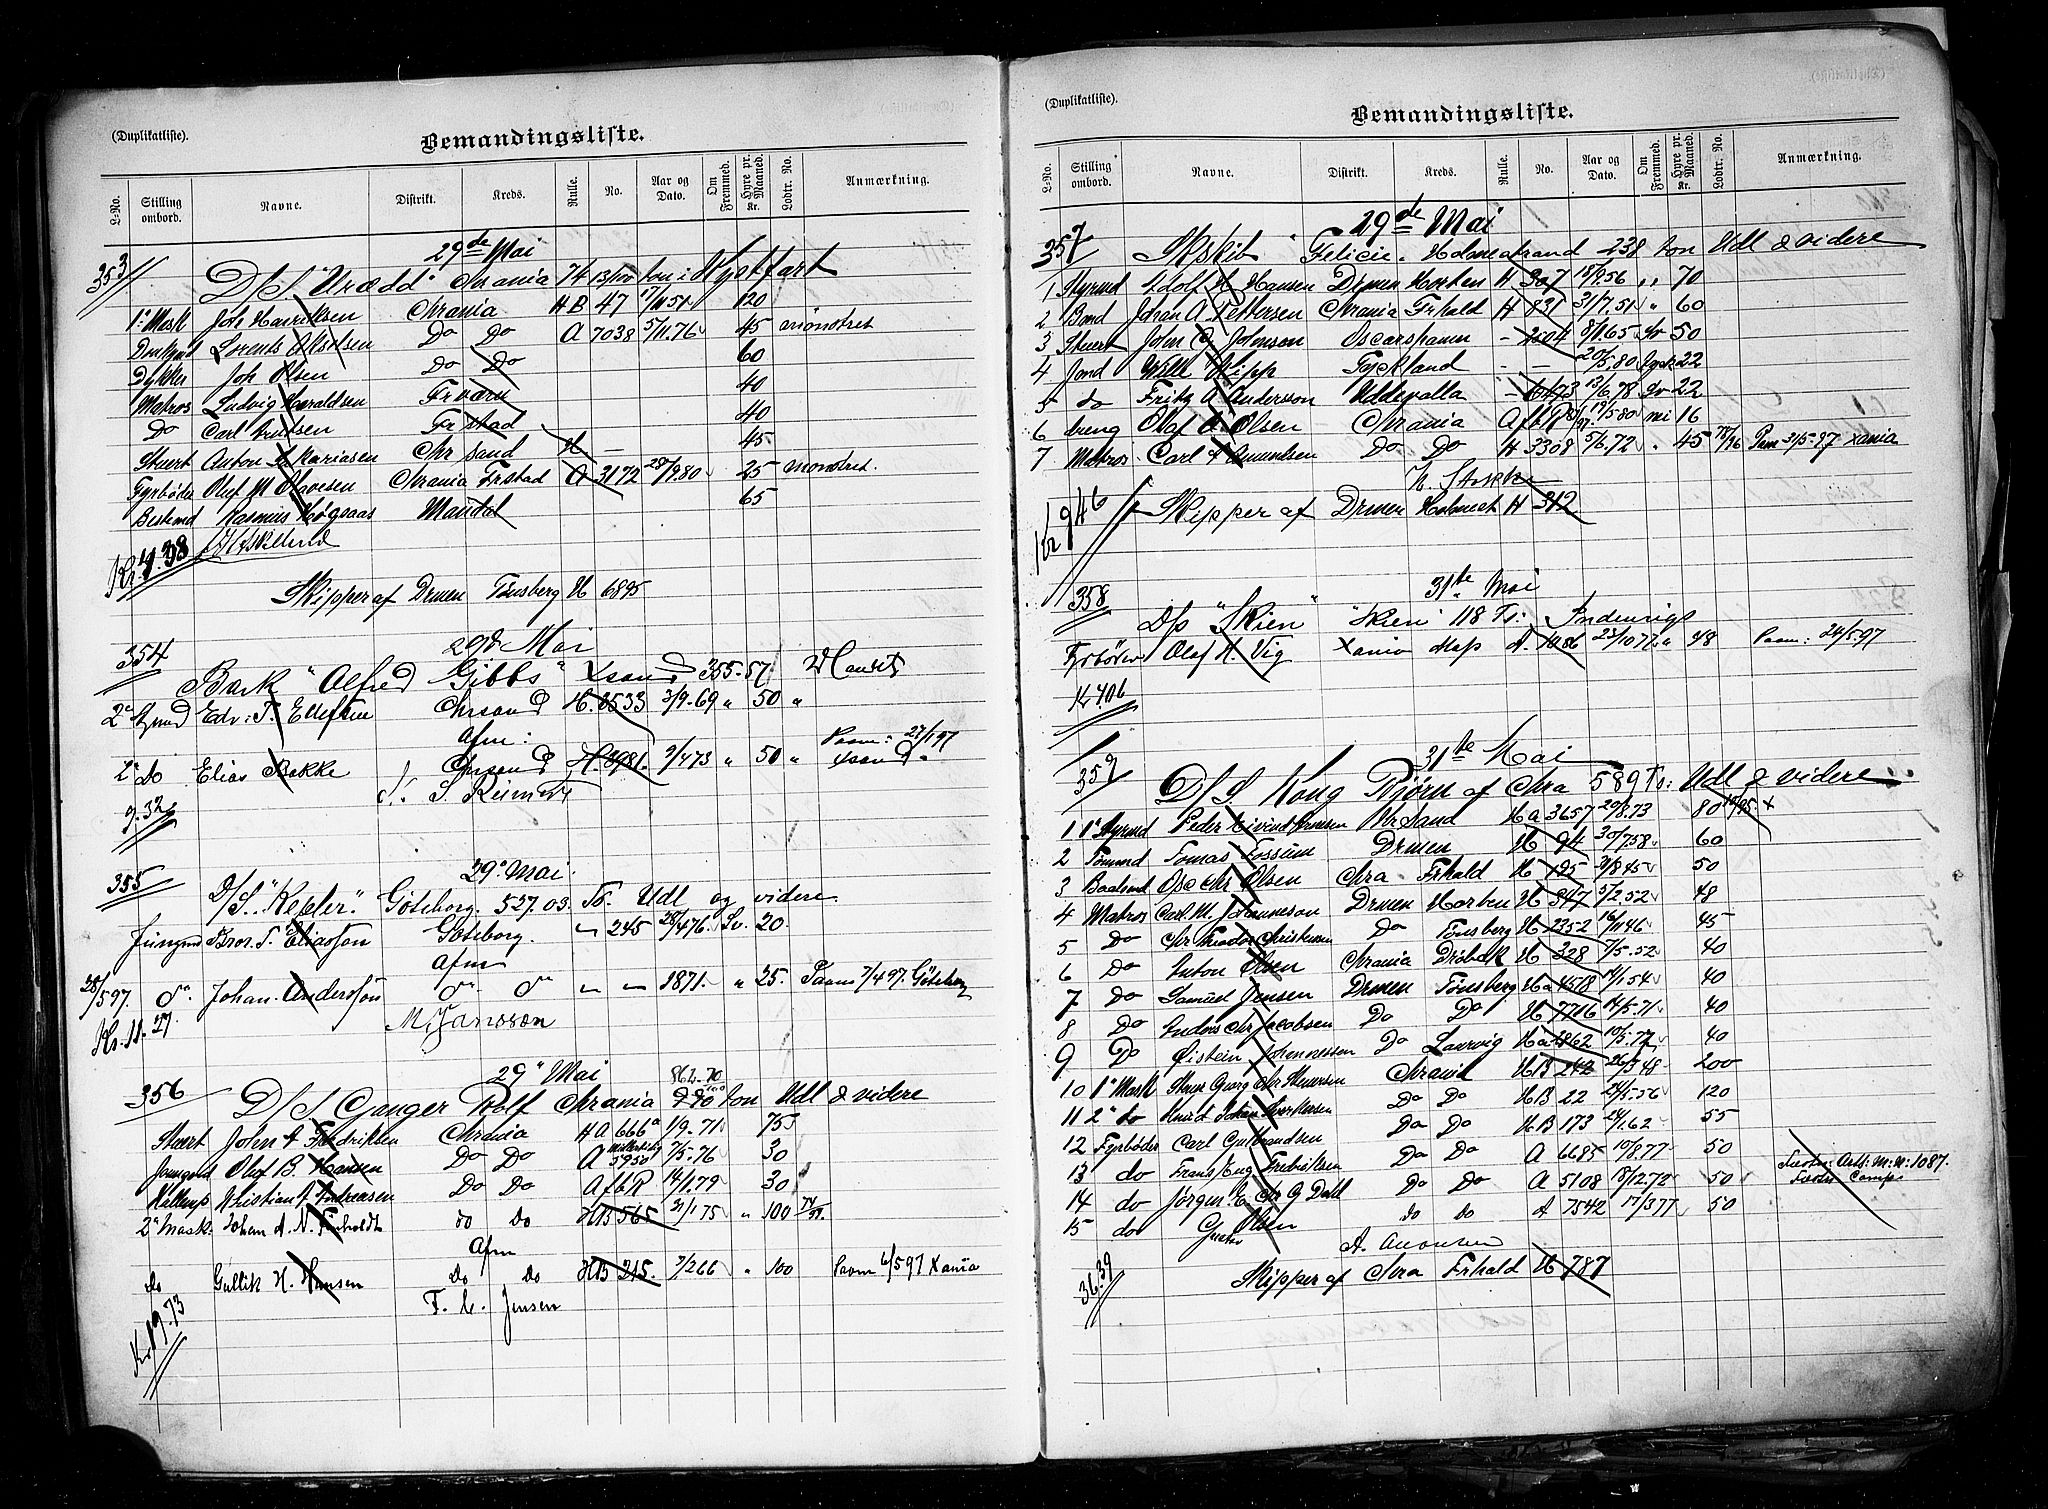 (Duplikatliste).
Bemandingsliste.
L-No. Stilling ombord. Navne. Distrikt. Kreds. Rulle. No. Aar og Dato. Om Fremmed. Hyre pr. Maaned. Kr. Lodtr. No. Anmærkning.
29de Mai
353 D/S. "Urædd" Chrania 74 13/100 ton i Kystfart
1e Mask Joh Henriksen Chrania HB 47 17/11 51 120
Donkmd Lorents Akselsen Do Do A 7038 5/11.76 45 mönstret
Dykker Joh Olsen Do Do 60
Matros Ludvig Haraldsen Frværn 40
Do Carl Knudsen Frstad 40
Stuert Anton Sakariasen Chr sand H — 45
Fyrböder Oluf M Olavesen Chrania Frstad A 3172 28/9.80 25 mönstret.
Bestmd Rasmus Högsaas Mandal 65
Kr 4.38
Skipper af Drmen Tönsberg H 6895
29d Mai
354 Bark "Alfred Gibbs" Xsand 355-57
2n Styrmd Edv: T. Ellefsen Chrsand H. 3533 3/9-69 " 50 "
Afm:
2n Do Elias Bakke Chrsand H. 3981 9/473 " 50 " Paam: 27/197 Xsand.
9.32
29 Mai
355 D/S. "Kepler." Göteborg. 527.03. To. Udl og videre
Jüngmd Bror. T. Eliasson Göteborg. — 245 28/476. Sv. 20.
Afm
28/597. do Johan. Andersson do do — — 1871. " 25. Paam 7/4 97. Göteborg
Kr. 11.27 M. Jansson
29 Mai
356 D/S Ganger Rolf Chrania 862.70 ton Udl & videre
Stuert John A Fredriksen Chrania HA 666a 1/9.71 75
Jungmd Olaf B. Hansen Do Do A 5950 7/5.76 30
Kullemp Kristian J Andreasen Do Do AfbR 14/1.79 30
2n Mask: Johan A. N. Finholdt do do HB 565 31/1 75 " 100
Afm
do Gullik H. Hansen do do HB 215. 7/266 " 100 Paam 6/597 Xania
F. C. Jensen
Kr 19.73
(Duplikatliste).
Bemandingsliste.
L-No. Stilling ombord. Navne. Distrikt. Kreds. Rulle. No. Aar og Dato. Om Fremmed. Hyre pr. Maaned. Kr. Lodtr. No. Anmærkning.
29de Mai
357 Skskib "Felicie" Holmestrand 238 ton Udl & videre
1 Styrmd Adolf H Hansen Drmen Horten H 307 18/9.56 " 70
2 Bmd Johan A. Pettersen Chrania Frhald H 831 31/7.51 " 60
3 Stuert John G Johnson Oscarshamn - 2504 8/11.65 Sv 50
4 Jmd Will Kipp Tyskland - - 20/5.80 Tysk 22
5 do Fritz A Andersson Uddevalla - 6473 13/6.78 Sv 22
6 dreng Olaf A Olsen Chrania AfbR 19/5 80 16
7 Matros Carl A Amundsen Do Do H 3308 5/6.72 " 45 Pam 31/5-97 Xania
Kr 9 46 Skipper af Drmen Holmest H 312
31te Mai
358 D/s "Skien" "Skien" 118 Ts: Indenrigs
Fyrböder Olaf H. Vig Xania Map A. 1086 23/1077 " 48 Paam: 24/5.97
Kr 4.06
31te Mai
359 D/S. Kong Bjørn af Chra 589 Ts: Udl & videre
1 1e Styrmd Peder Eivind Arnesen Chr Sand Ha 3657 29/8.73 80
2 Tömmd Tomas Fossum Drmen H 94 30/758 60
3 Baatsmd Osc Chr Olsen Chra Frhald H 195 31/8 45 50
4 Matros Carl. M. Johannesen Drmen Horten H 347 5/2.52 48
5 Do Chr Teodor Christensen Do Tönsberg H 2352 16/11 46 45
6 Do Anton Olsen Chrania Dröbak H 328 7/5.52 40
7 Do Samuel Jensen Drmen Tönsberg Ha 4518 14/1.54 40
8 Do Ludvig Chr Jacobsen Do Do H 7716 14/5.71 40
9 Do Øistein Johannessen Do Laurvig Ha 2862 10/5.77 40
10 1e Mask Chrania HB 242 26/3 48 200
11 2n do Do Do HB 22 24/1-56 120
12 Fyrböder Carl Gulbrandsen Do Do HB 173 24/1.62 55
13 do Frans Aug Fredriksen Do Do A 6685 10/8.77 50
14 do Jörgen E Chr G Dahl Do Do A 5108 18/12.72 50
15 do Gustav Olsen do do A 7542 17/377 50
36.39 Skipper af Chra Frhald H 787